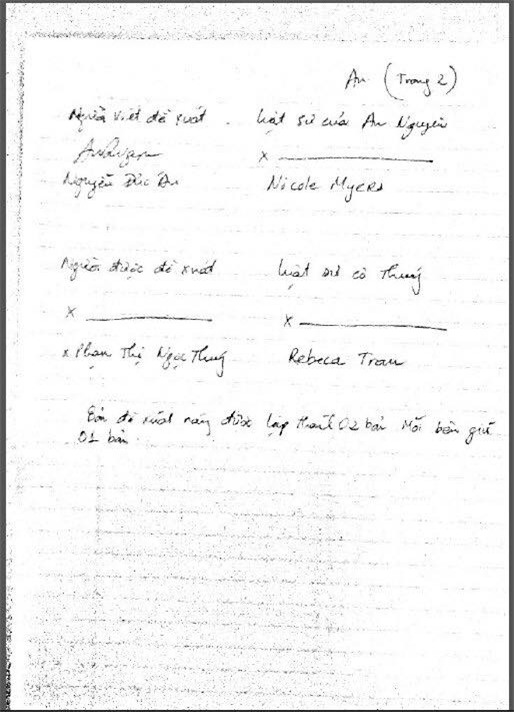 An (Trang 2)
Người viết đề xuất . Luật sư của An Nguyen
An Nguyen X
Nguyễn Đức An Nicole Myers
Người được đề xuất Luật sư cô Thuý
X X
x Phạn Thị Ngọc Thuý Rebeca Tran
Bản đề xuất này được lập thành 02 bản Mỗi bên giữ
01 bản